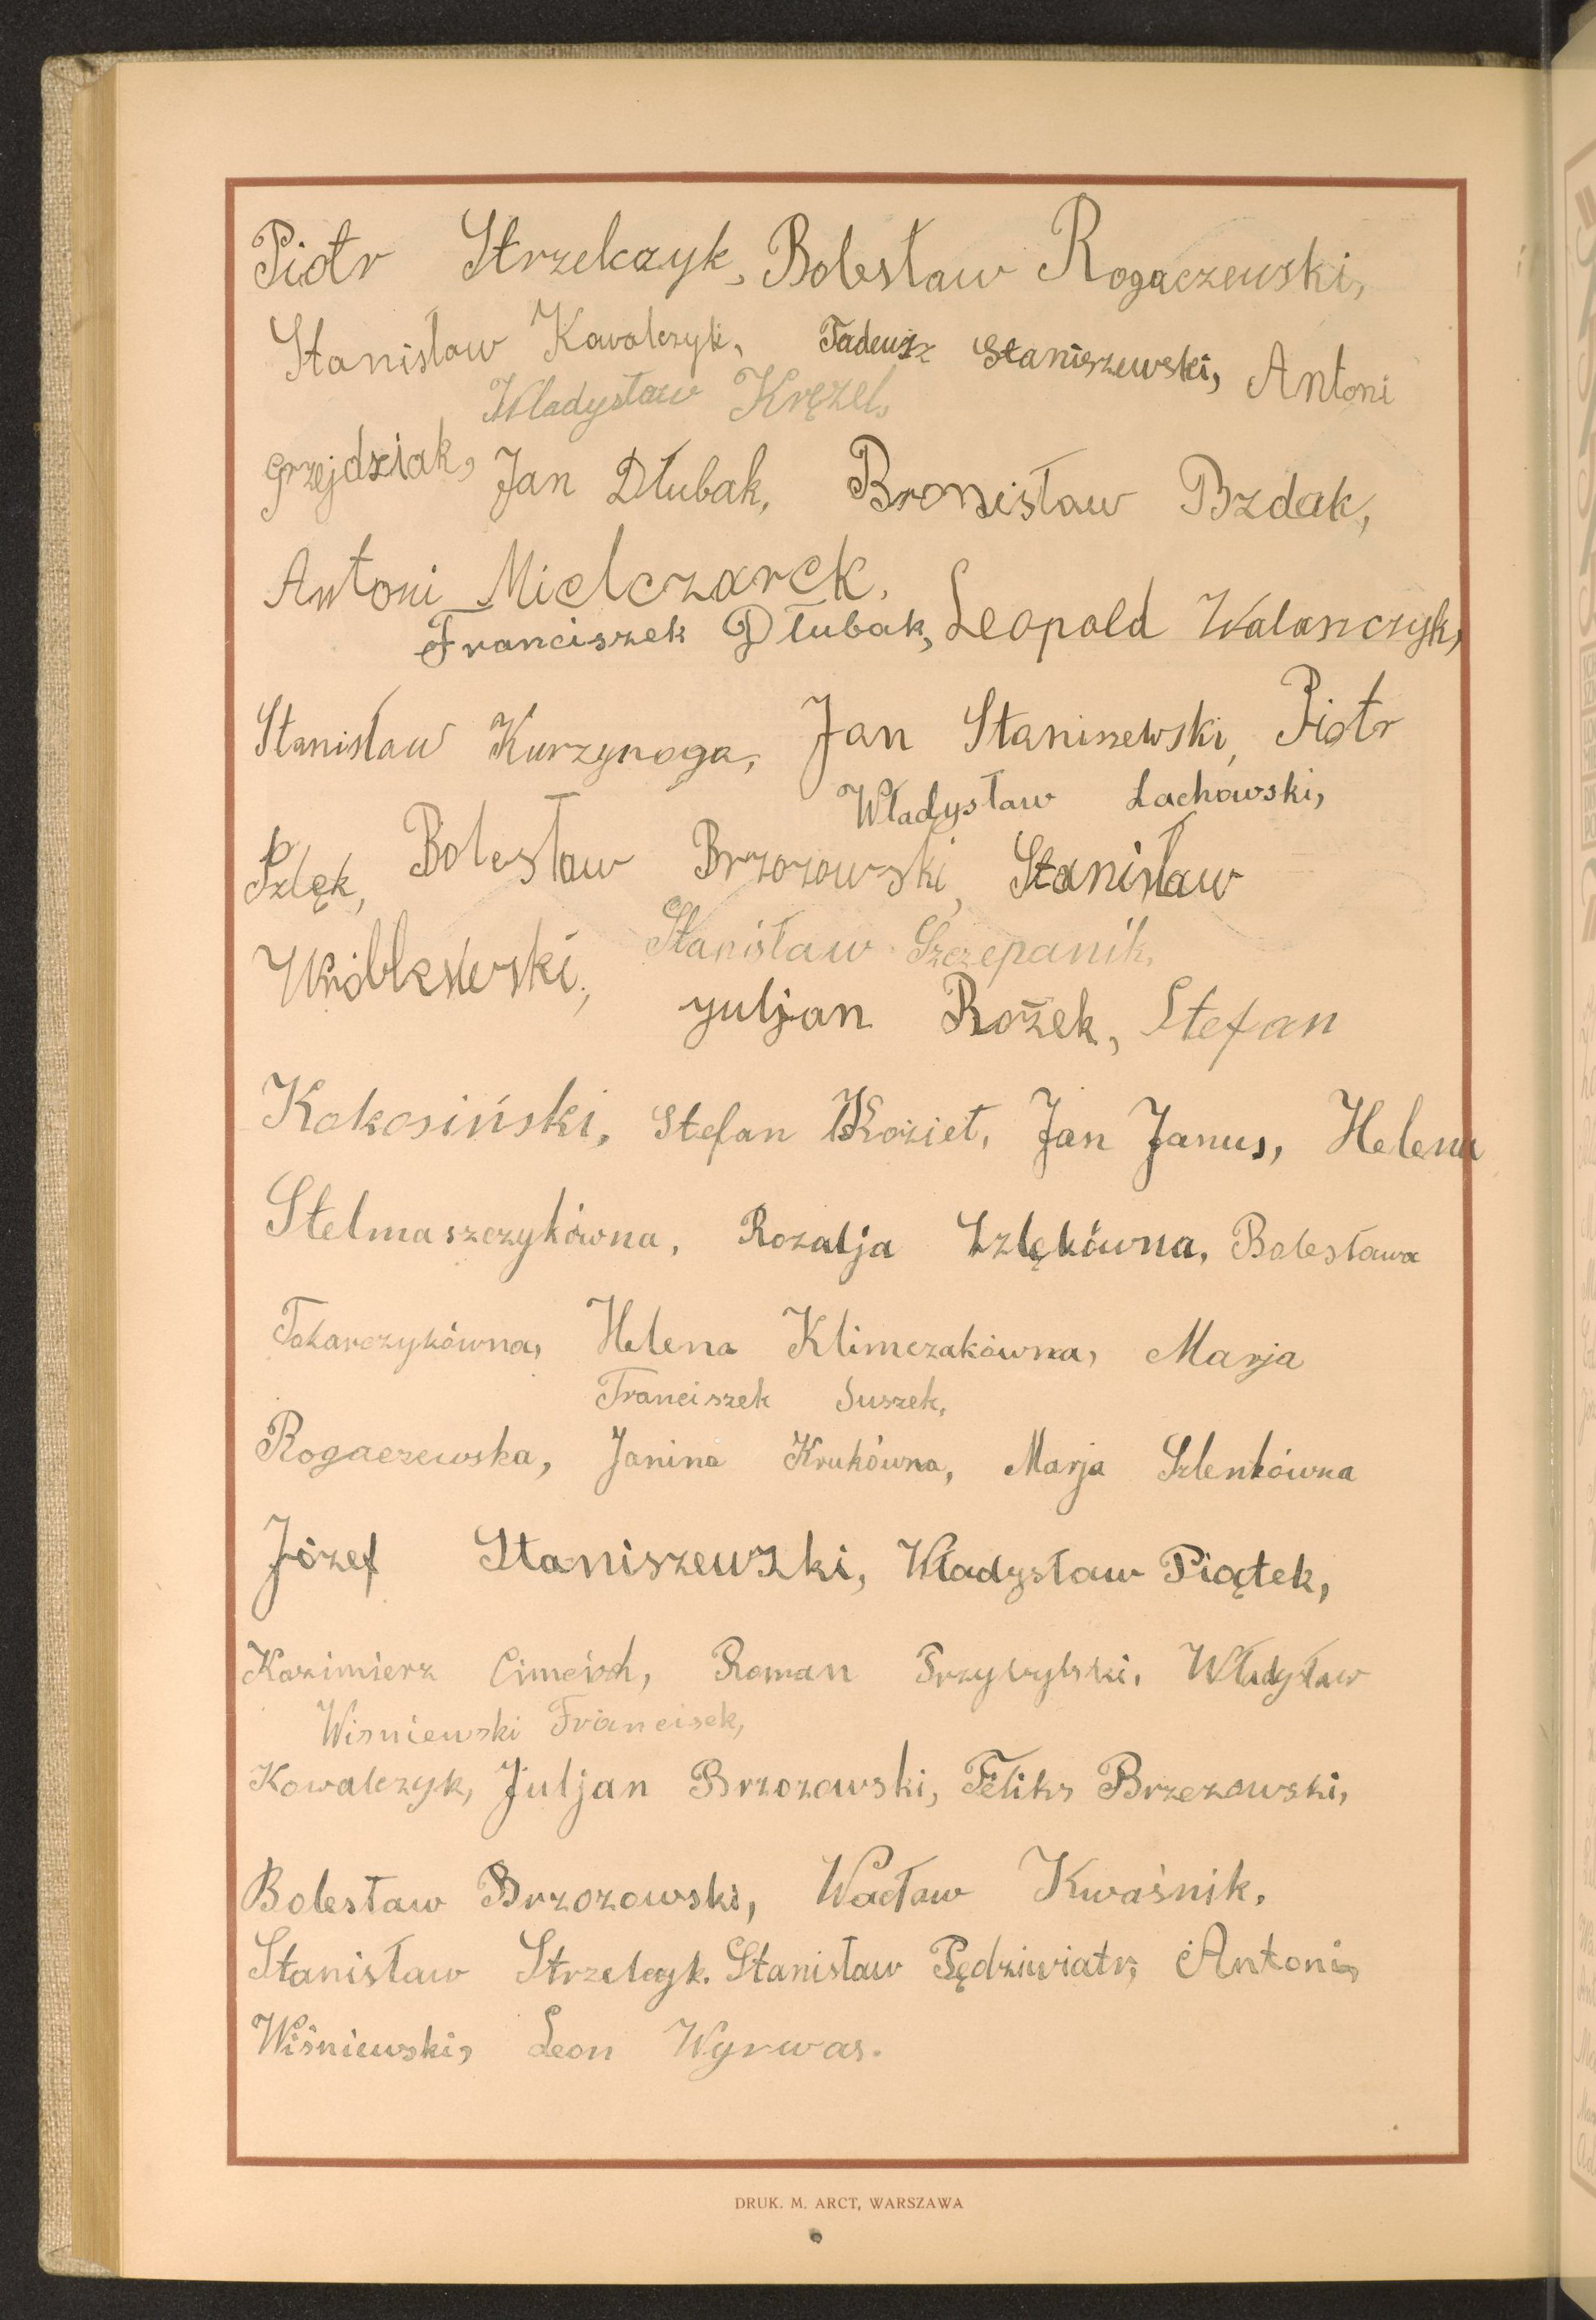 Piotr Strzelczyk, Bolesław Rogaczewski,
Stanisław Kowalczyk, Tadeusz Staniszewski, Antoni
Władysław Kręzel,
Grzejdziak, Jan Dłubak, Bronisław Bzdak,
Antoni Mielczarek,
Franciszek Dłubak, Leopold Walanczyk,
Stanisław Kurzynoga, Jan Staniszewski, Piotr
Władysław Lachowski,
Szlęk, Bolesław Brzozowski, Stanisław
Wróblewski, Stanisław Szczepanik,
Juljan Rożek, Stefan
Kokosiński, Stefan Kozieł, Jan Janus, Helena
Stelmaszczykówna, Rozalja Szlękówna, Bolesława
Tokarczykówna, Helena Klimczakówna, Marja
Franciszek Suszek,
Rogaczewska, Janina Krukówna, Marja Szlenkówna
Józef Staniszewski, Władysław Piątek,
Kazimierz Roman Przybylski, Władysław
Wisniewski Francisek,
Kowalczyk, Juljan Brzozowski, Feliks Brzezowski,
Bolesław Brzozowski, Wacław Kwaśnik,
Stanisław Strzelczyk. Stanisław Pędziwiatr, Antoni,
Wiśniewski, Leon Wyrwas.
DRUK. M. ARCT, WARSZAWA